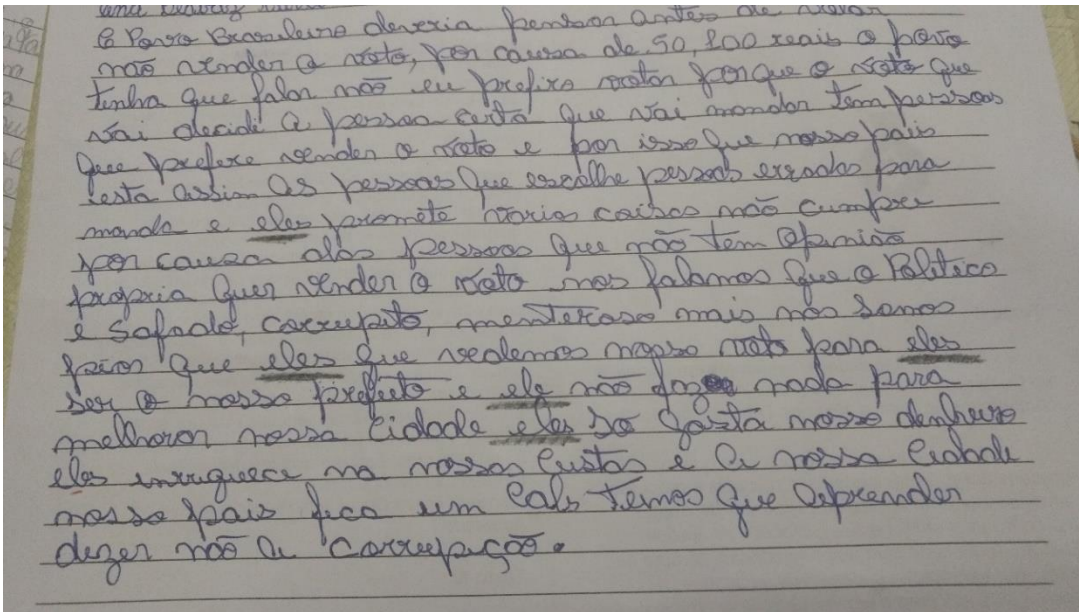 O Povo Brasileiro deveria pensar antes de votar
não vender o voto, por causa de 50, 100 reais o povo
tinha que falar não eu prefiro votar porque o voto que
vai decidi a pessoa certa que vai mandar tem pessoas
que prefere vender o voto e por isso que nosso pais
esta assim As pessoas que escolhe pessoas erradas para
manda e eles promete varias coisas não cumpre
por causa das pessoas que não tem opinião
propria quer vender o voto nos falamos que o Politico
e safado, corrupito, menteroso mais nos somos
pior que eles que vedemos nosso voto para eles
ser o nosso prefeito e ele não faz nada para
melhoror nossa cidade eles so gasta nosso denheiro
eles inriquece na nossas custas e a nossa cidade
nosso pais fica um cals temos que aprender
dizer não a corrupição.